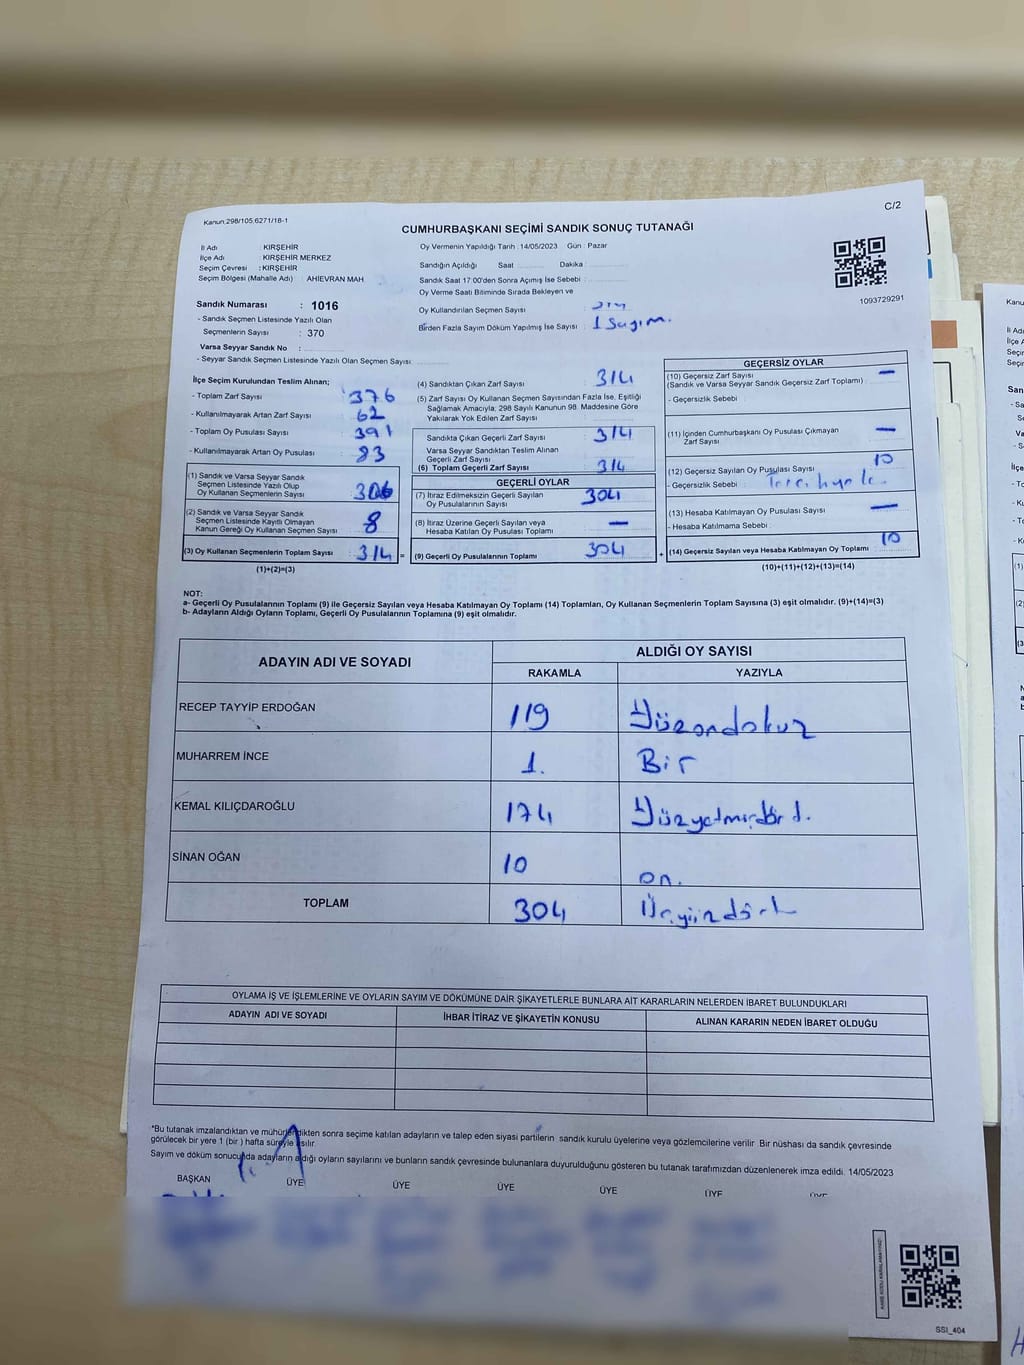 Kanun 298/105.6271/18-1
C/2
CUMHURBAŞKANI SEÇİMİ SANDIK SONUÇ TUTANAĞI
İl Adı : KIRŞEHİR
İlçe Adı : KIRŞEHİR MERKEZ
Seçim Çevresi : KIRŞEHİR
Seçim Bölgesi (Mahalle Adı) : AHİEVRAN MAH
Oy Vermenin Yapıldığı Tarih : 14/05/2023 Gün : Pazar
Sandığın Açıldığı Saat Dakika
Sandık Saat 17:00'den Sonra Açımış İse Sebebi :
Oy Verme Saati Bitiminde Sırada Bekleyen ve
Oy Kullandırılan Seçmen Sayısı
Birden Fazla Sayım Döküm Yapılmış İse Sayısı : 1 Sayım.
1093729291
Sandık Numarası : 1016
- Sandık Seçmen Listesinde Yazılı Olan
Seçmenlerin Sayısı : 370
Varsa Seyyar Sandık No :
- Seyyar Sandık Seçmen Listesinde Yazılı Olan Seçmen Sayısı
İlçe Seçim Kurulundan Teslim Alınan;
- Toplam Zarf Sayısı : 376
- Kullanılmayarak Artan Zarf Sayısı : 62
- Toplam Oy Pusulası Sayısı : 391
- Kullanılmayarak Artan Oy Pusulası : 83
(1) Sandık ve Varsa Seyyar Sandık
Seçmen Listesinde Yazılı Olup
Oy Kullanan Seçmenlerin Sayısı : 306
(2) Sandık ve Varsa Seyyar Sandık
Seçmen Listesinde Kayıtlı Olmayan
Kanun Gereği Oy Kullanan Seçmen Sayısı : 8
(3) Oy Kullanan Seçmenlerin Toplam Sayısı : 314 =
(1)+(2)=(3)
(4) Sandıktan Çıkan Zarf Sayısı : 314
(5) Zarf Sayısı Oy Kullanan Seçmen Sayısından Fazla İse, Eşitliği
Sağlamak Amacıyla; 298 Sayılı Kanunun 98. Maddesine Göre
Yakılarak Yok Edilen Zarf Sayısı
Sandıkta Çıkan Geçerli Zarf Sayısı : 314
Varsa Seyyar Sandıktan Teslim Alınan
Geçerli Zarf Sayısı
(6) Toplam Geçerli Zarf Sayısı : 314
GEÇERLİ OYLAR
(7) İtiraz Edilmeksizin Geçerli Sayılan
Oy Pusulalarının Sayısı : 304
(8) İtiraz Üzerine Geçerli Sayılan veya
Hesaba Katılan Oy Pusulası Toplamı : —
(9) Geçerli Oy Pusulalarının Toplamı : 304 +
GEÇERSİZ OYLAR
(10) Geçersiz Zarf Sayısı : —
(Sandık ve Varsa Seyyar Sandık Geçersiz Zarf Toplamı)
- Geçersizlik Sebebi :
(11) İçinden Cumhurbaşkanı Oy Pusulası Çıkmayan
Zarf Sayısı : —
(12) Geçersiz Sayılan Oy Pusulası Sayısı : 10
- Geçersizlik Sebebi :
(13) Hesaba Katılmayan Oy Pusulası Sayısı : —
- Hesaba Katılmama Sebebi :
(14) Geçersiz Sayılan veya Hesaba Katılmayan Oy Toplamı : 10
(10)+(11)+(12)+(13)=(14)
NOT:
a- Geçerli Oy Pusulalarının Toplamı (9) ile Geçersiz Sayılan veya Hesaba Katılmayan Oy Toplamı (14) Toplamları, Oy Kullanan Seçmenlerin Toplam Sayısına (3) eşit olmalıdır. (9)+(14)=(3)
b- Adayların Aldığı Oyların Toplamı, Geçerli Oy Pusulalarının Toplamına (9) eşit olmalıdır.
ADAYIN ADI VE SOYADI
ALDIĞI OY SAYISI
RAKAMLA YAZIYLA
RECEP TAYYİP ERDOĞAN 119 Yüzondokuz
MUHARREM İNCE 1. Bir
KEMAL KILIÇDAROĞLU 174 Yüzyetmişdört.
SİNAN OĞAN 10 on.
TOPLAM 304 Üçyüzdört
OYLAMA İŞ VE İŞLEMLERİNE VE OYLARIN SAYIM VE DÖKÜMÜNE DAİR ŞİKAYETLERLE BUNLARA AİT KARARLARIN NELERDEN İBARET BULUNDUKLARI
ADAYIN ADI VE SOYADI İHBAR İTİRAZ VE ŞİKAYETİN KONUSU ALINAN KARARIN NEDEN İBARET OLDUĞU
*Bu tutanak imzalandıktan ve mühürlendikten sonra seçime katılan adayların ve talep eden siyasi partilerin sandık kurulu üyelerine veya gözlemcilerine verilir Bir nüshası da sandık çevresinde
görülecek bir yere 1 (bir) hafta süreyle asılır.
Sayım ve döküm sonucunda adayların aldığı oyların sayılarını ve bunların sandık çevresinde bulunanlara duyurulduğunu gösteren bu tutanak tarafımızdan düzenlenerek imza edildi. 14/05/2023
BAŞKAN ÜYE ÜYE ÜYE ÜYE ÜYE ÜYE
SSI_404